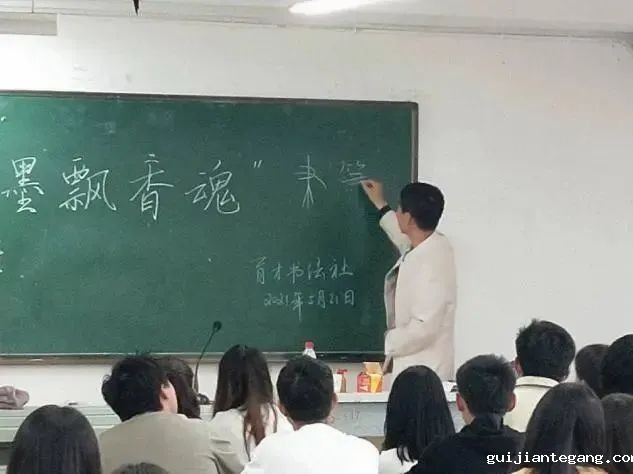 墨飘香魂"
育才书法社
2021年5月21日
guijiantegang.com